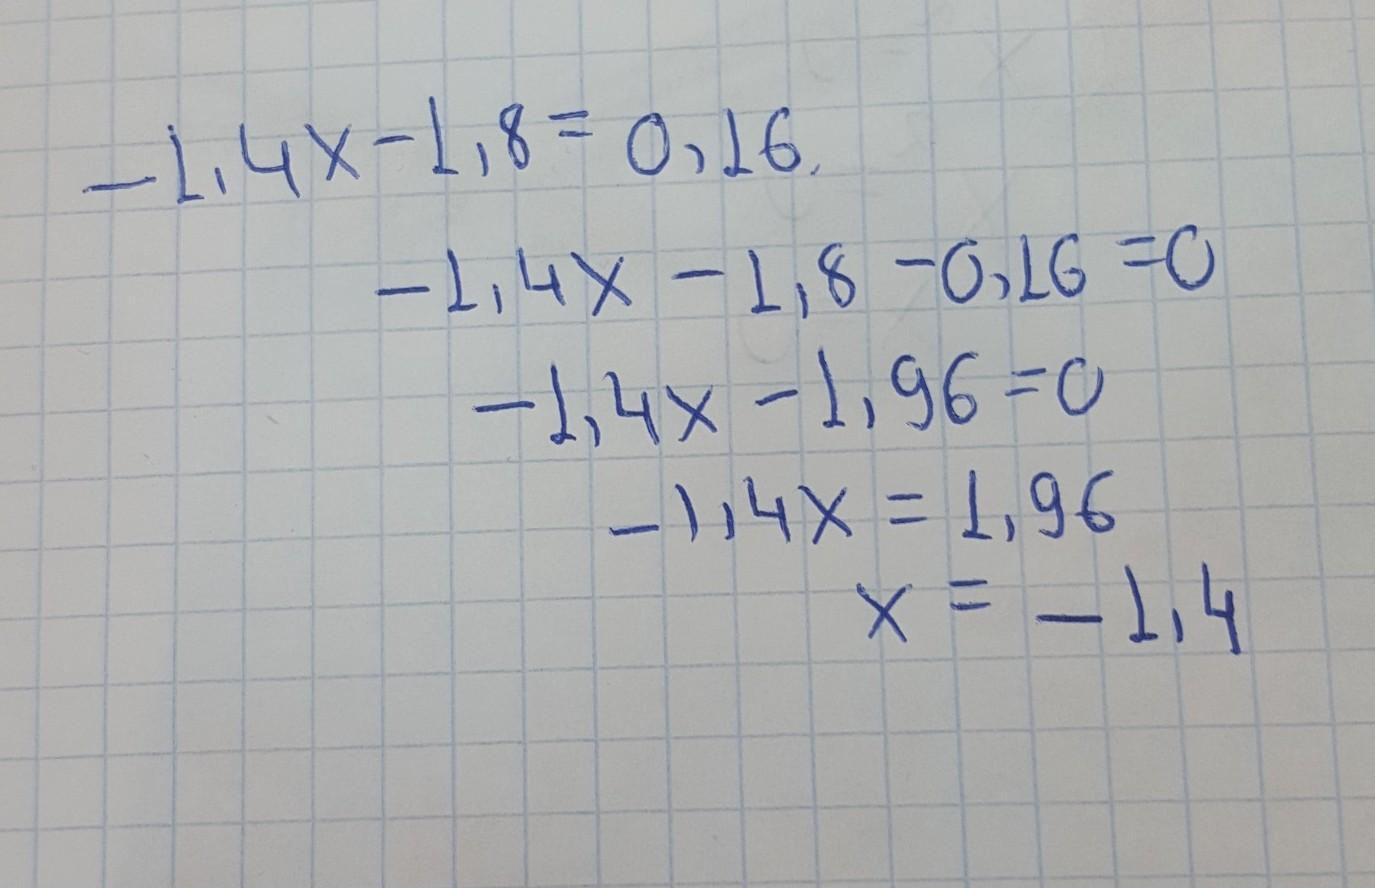 -1,4x-1,8=0,16.
-1,4x-1,8-0,16=0
-1,4x-1,96=0
-1,4x=1,96
x=-1,4